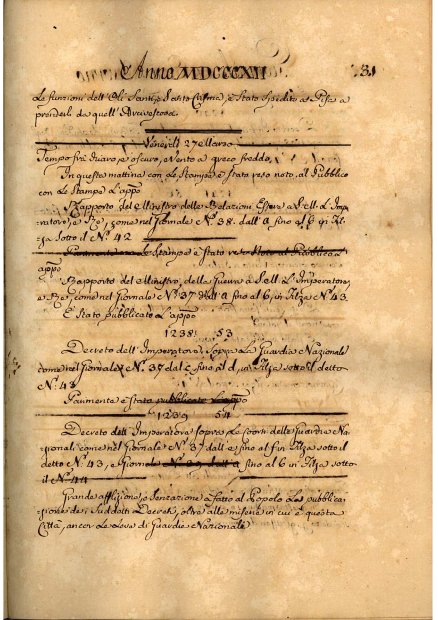 Anno MDCCCXII
Le funzioni dell'Oli Santi, e Santo Crisma, è Stato Spedito a Pisa a
prenderli da quell'Arcivescovo.
Venerdì 27 Marzo
Tempo oscuro, e Vento a greco freddo,
In questa mattina con Le Stampe è stata reso noto, al Pubblico
con Le Stampe L'appo
Rapporto del Ministro delle Relazioni Estere a S. M. L'Impe
ratore, e Re, come nel Giornale N.º 38. dall' a fino al b in Fil
za Sotto il N.º 42
Le Stampe è stato reso Noto al Pubblico
appo
Rapporto del Ministro, della Guerra a S. M. L'Imperatore,
e Re, come nel Giornale N.º 37 dall' a fino al b, in Filza N.º 43.
E Stato pubblicato L'appo
1238 53
Decreto dell'Imperatore, Sopra La Guardia Nazionale
come nel Giornale N.º 37 dal c fino al d, in Filza sotto il detto
N.º 43
è stato pubblicato L'appo
1239 54
Decreto dell'Imperatore sopra Le Coorti delle Guardie Na
zionali come nel Giornale N.º 37 dall' e fino al f in Filza sotto il
detto N.º 43, e Giornale N.º 39 dall' a fino al b in Filza sotto
il N.º 44
Grande afflizione, e Sensazione à fatto al Popolo La pubblica
zione dei Suddetti Decreti, oltre alle miserie in cui è questa
Città, ancor Le Leve di Guardie Nazionale